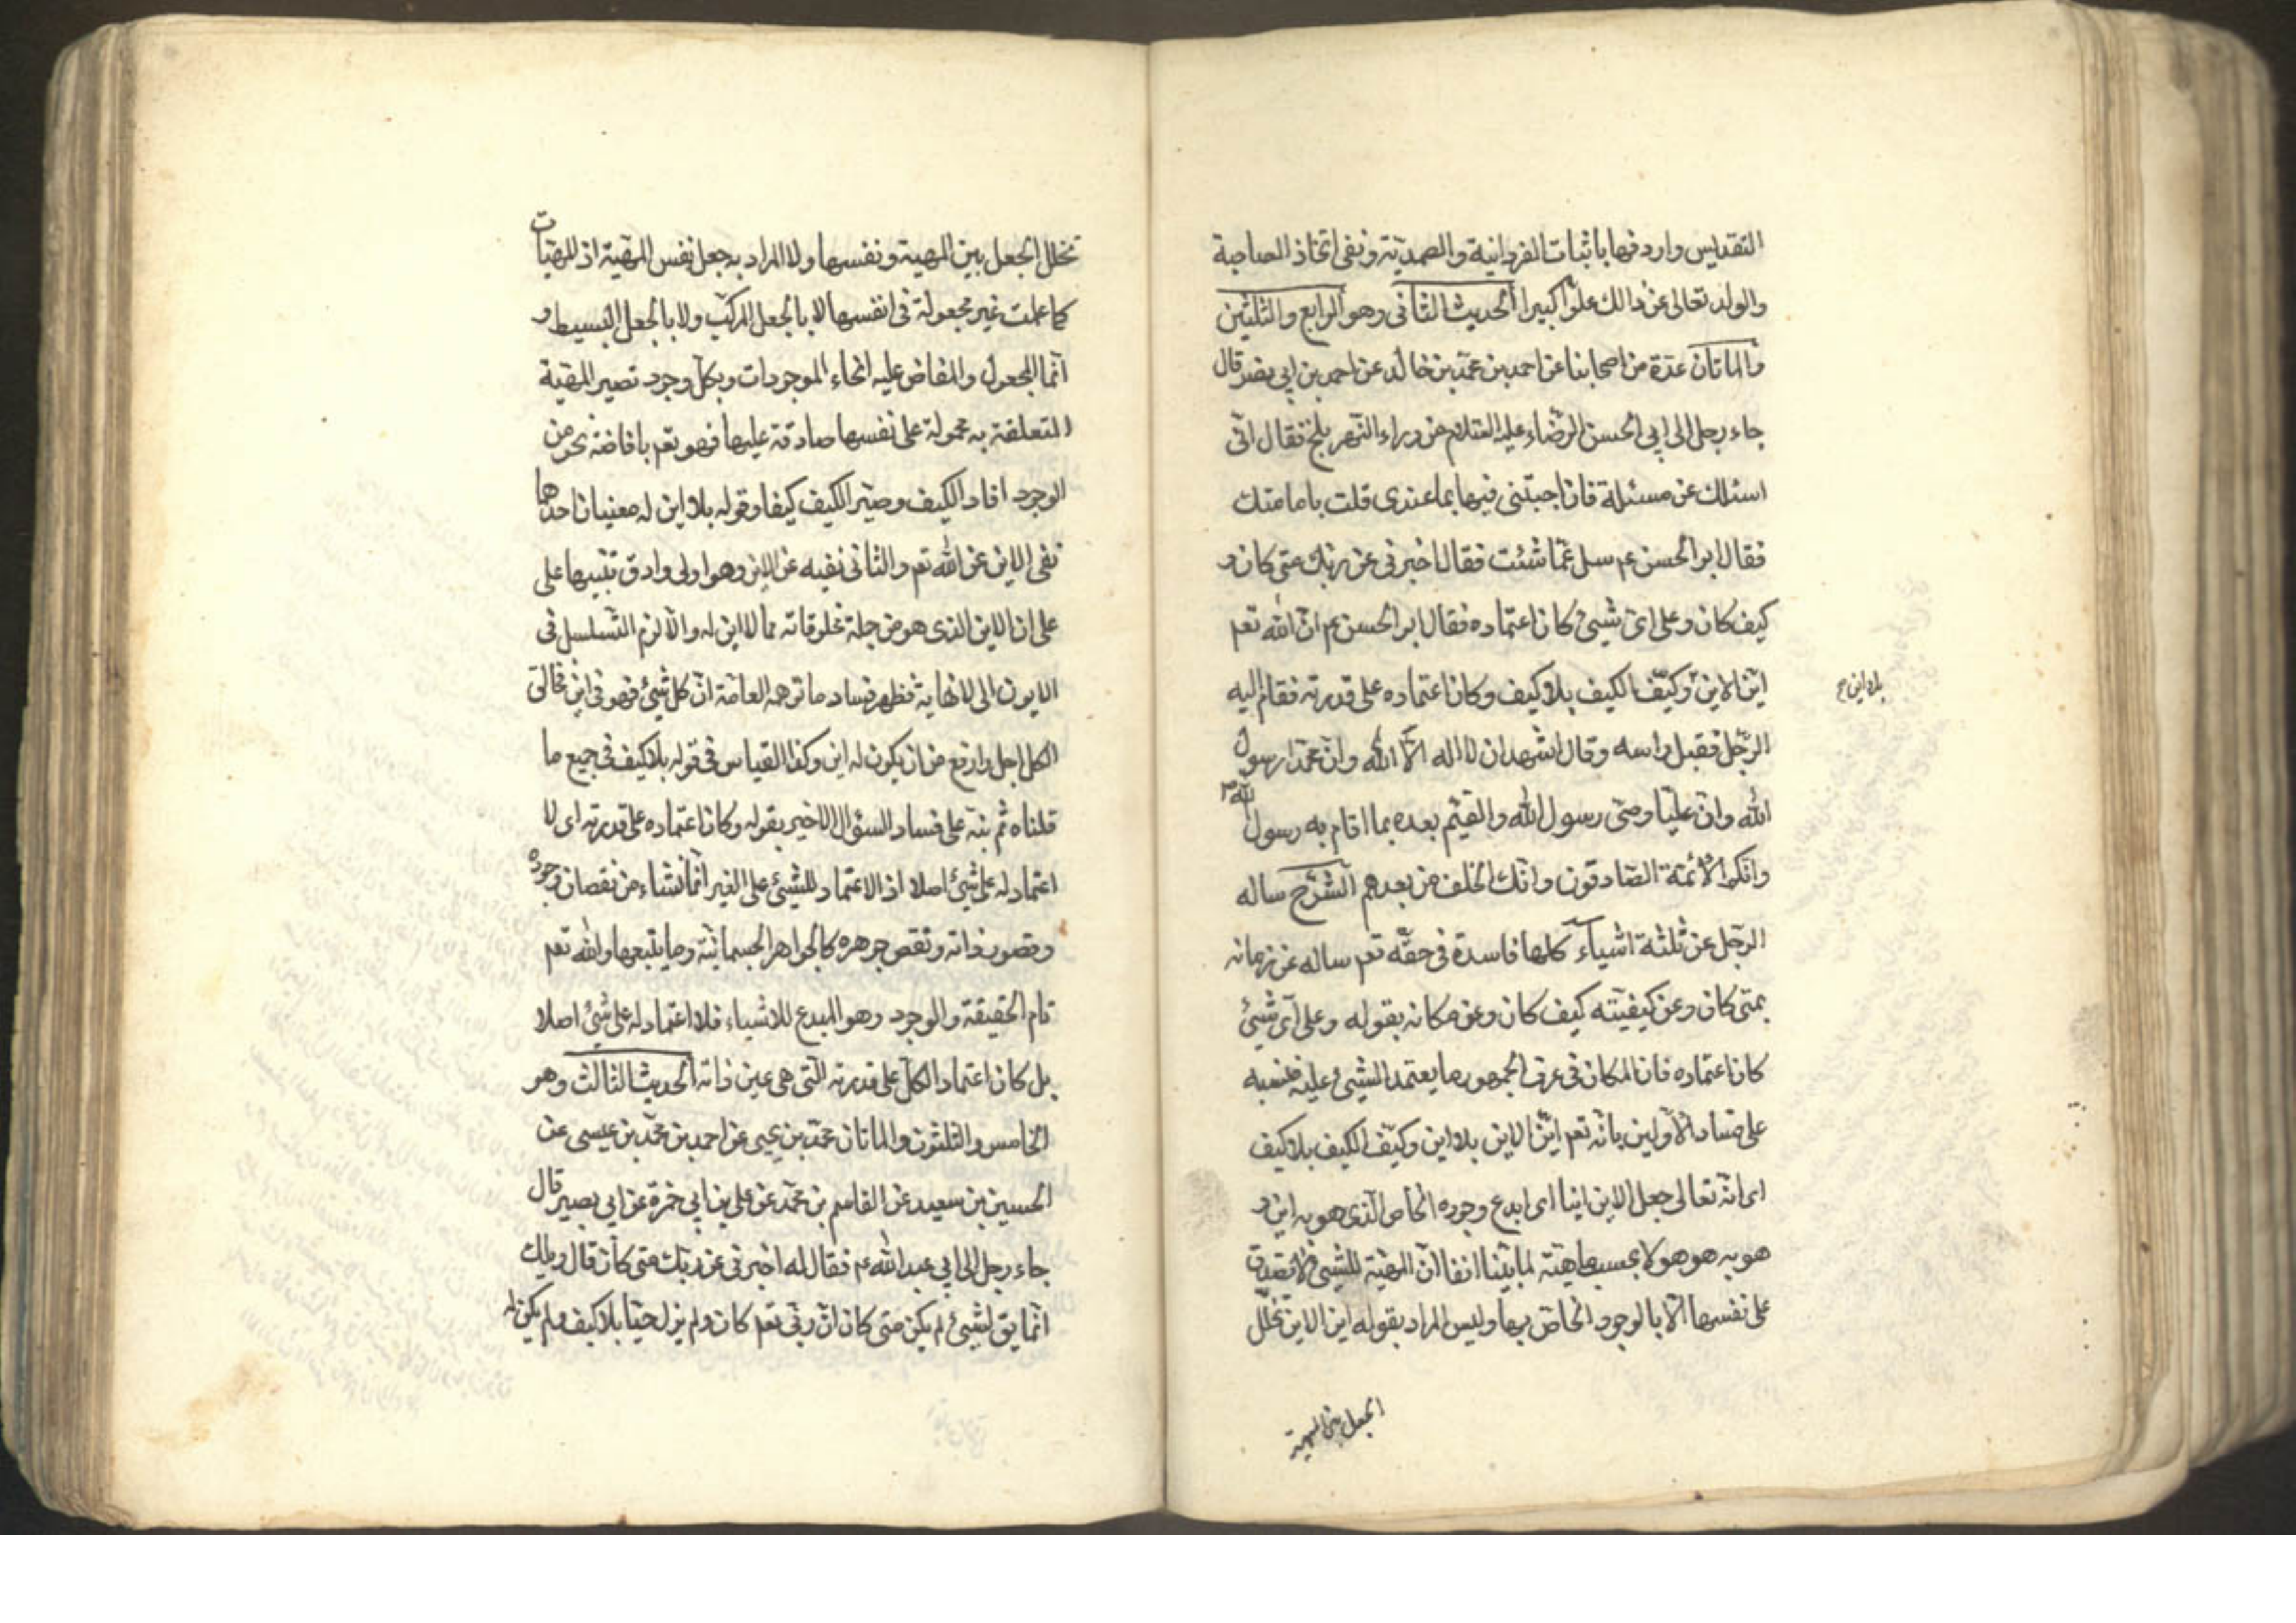 التقديس واردفها باثبات الفردانية والصمديّة ونفى اتخاذ الصاحبة
والولد تعالى عن ذالك علوّا كبيرا الحديث الثانى وهو الرابع والثلثين
والماتان عدّة من اصحابنا عن احمد بن محمّد بن خالد عن احمد بن ابى نصر قال
جاء رجل الى ابى الحسن الرّضاء عليه السّلام من وراء النّهر بلخ فقال انّى
اسئلك عن مسئلة فان اجبتنى فيها بما عندى قلت بامامتك
فقال ابو الحسن عم سل عمّا شئت فقال اخبرنى عن ربّك متى كان و
كيف كان وعلى اىّ شيئ كان اعتماده فقال ابو الحسن عم انّ الله تعم
ايّن الاين وكيّف الكيف بلا كيف وكان اعتماده على قدرته فقام اليه
بلا اين ح
الرّجل فقبل راسه وقال اشهد ان لا اله الّا الله وانّ محمّدا رسول
الله وانّ عليّا وصىّ رسول الله والقيّم بعده بما اقام به رسول الله ص
وانّكم الائمّة الصّادقون وانّك الخلف من بعدهم الشّرح ساله
الرّجل عن ثلثة اشياء كلها فاسدة فى حقّه تعم ساله عن زمانه
بمتى كان وعن كيفيّته كيف كان وعن مكانه بقوله وعلى اىّ شيئ
كان اعتماده فان المكان فى عرف الجمهور ما يعتمد الشيئ عليه فنبه
على فساد الاوّلين بانّه تعم ايّن الاين بلا اين وكيّف الكيف بلا كيف
اى انّه تعالى جعل الاين اينا اى ابدع وجوده الخاص الّذى هو به اين و
هو به هو هو لا بحسب ماهيّته لما بيّنا انفا انّ المهيّة للشيئ لا تصدق
على نفسها الّا بالوجود الخاصّ بها وليس المراد بقوله اين الاين تخلّل
الجعل بين المهية
تخلل الجعل بين المهية ونفسها ولا المراد به جعل نفس المهيّة اذ المهيّات
كما علمت غير مجعولة فى انفسها لا بالجعل المركّب ولا بالجعل البسيط و
انّما المجعول والمفاض عليه انحاء الموجودات وبكلّ وجود تصير المهيّة
المتعلقة به محمولة على نفسها صادقة عليها فهو تعم بافاضة نحو من
الوجود افاد الكيف وصيّر الكيف كيفا وقوله بلا اين له معنيان احدهما
نفى الاين عن الله تعم والثانى نفيه عن الاين وهو اولى وادق تنبيها على
على ان الاين الذى هو من جملة مخلوقاته مما لا اين له والّا لزم التسلسل فى
الايون الى لا نهاية فظهر فساد ما توهمه العامّة انّ كل شيئ فهو فى اين فخالق
الكل اجل وارفع من ان يكون له اين وكذا القياس فى قوله بلا كيف فى جميع ما
قلناه ثم نبّه على فساد السئوال الاخير بقوله وكان اعتماده على قدرته اى لا
اعتماد له على شيئ اصلا اذ الاعتماد للشيئ على الغير انّما نشاء من نقصان وجوده
وقصور ذاته ونقص جوهره كالجواهر الجسمانيّة وما يتبعها والله تعم
تام الحقيقة والوجود وهو المبدع للاشياء فلا اعتماد له على شيئ اصلا
بل كان اعتماد الكلّ على قدرته الّتى هى عين ذاته الحديث الثالث وهو
الخامس والثلثون والماتان محمّد بن يحيى عن احمد بن محمّد بن عيسى عن
الحسين بن سعيد عن القاسم بن محمّد عن على بن ابى حمزة عن ابى بصير قال
جاء رجل الى ابى عبد الله عم فقال له اخبرنى عن ربّك متى كان قال ويلك
انّما يق لشيئ لم يكن متى كان انّ ربّى تعم كان ولم يزل حيّا بلا كيف ولم يكن له